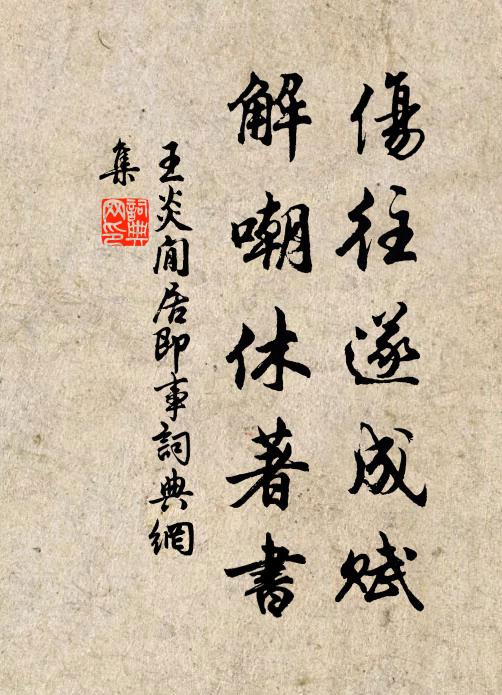 傷往遂成賦
解嘲休著書
王炎閒居即事詞典網
集
詞典
网印